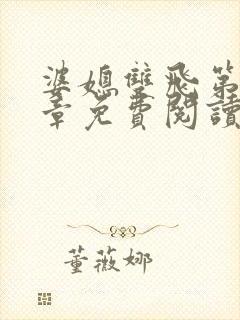 婆媳雙飛第
章免費閱讀
董薇娜